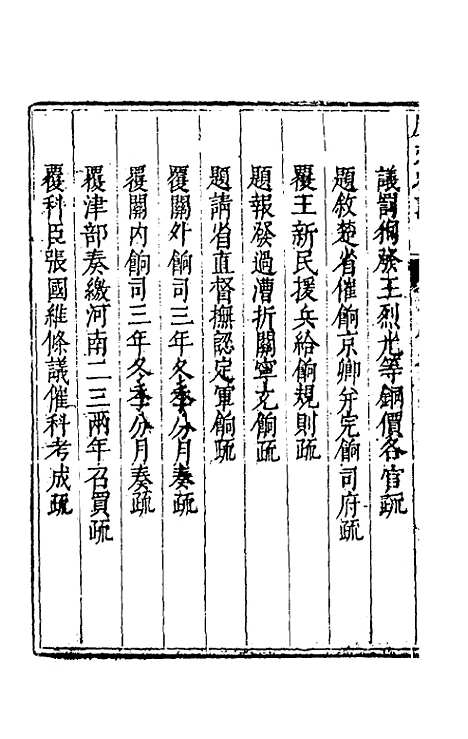 議罰徇縱王烈光等銅價各官疏
題敘楚省催餉京卿幷完餉司府疏
覆王新民援兵給餉規則疏
題報發過漕折關寧尤餉疏
題請省直督撫認定軍餉疏
覆關外餉司三年冬季分月奏疏
覆關內餉司三年冬季分月奏疏
覆津部奏繳河南二三兩年召買疏
覆科臣張國維條議催科考成疏